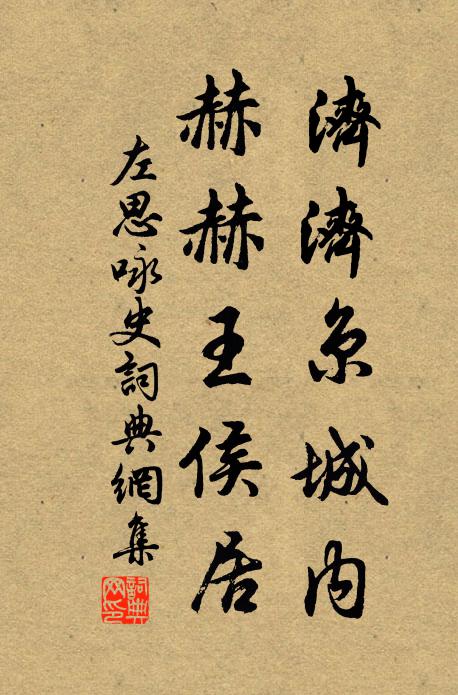 濟濟京城內
赫赫王侯居
左思咏史詞典網集
詞典網印